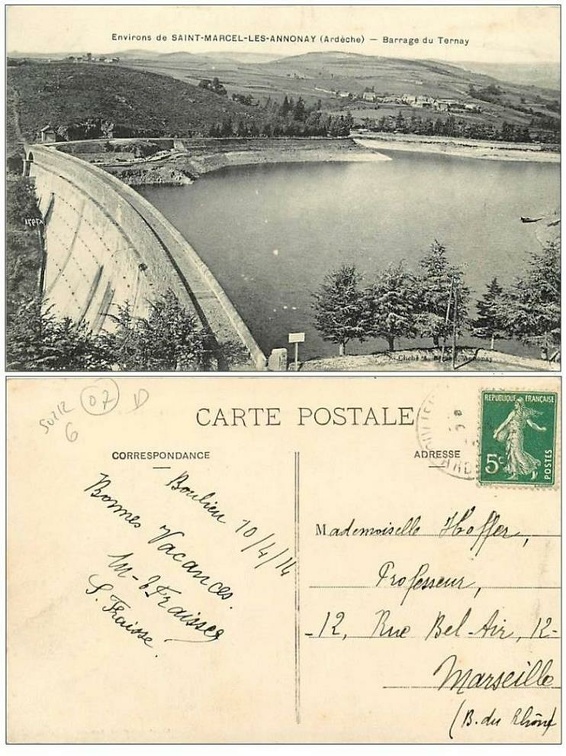 Environs de SAINT-MARCEL-LES-ANNONAY (Ardèche) — Barrage du Ternay
07
CARTE POSTALE
CORRESPONDANCE
ADRESSE
REPUBLIQUE FRANÇAISE
5c
POSTES
Boulieu 10/4/14
Bonnes Vacances.
Fraisse
S. Fraisse.
Mademoiselle Hoffer,
Professeur,
-12, Rue Bel-Air, 12-
Marseille
(B. du Rhône)